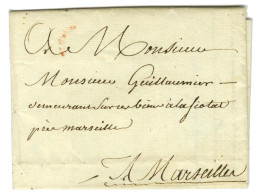 A Monsieur
Monsieur Guillaumier
demeurant sur son bien a la Ciotat
près marseille
A Marseille